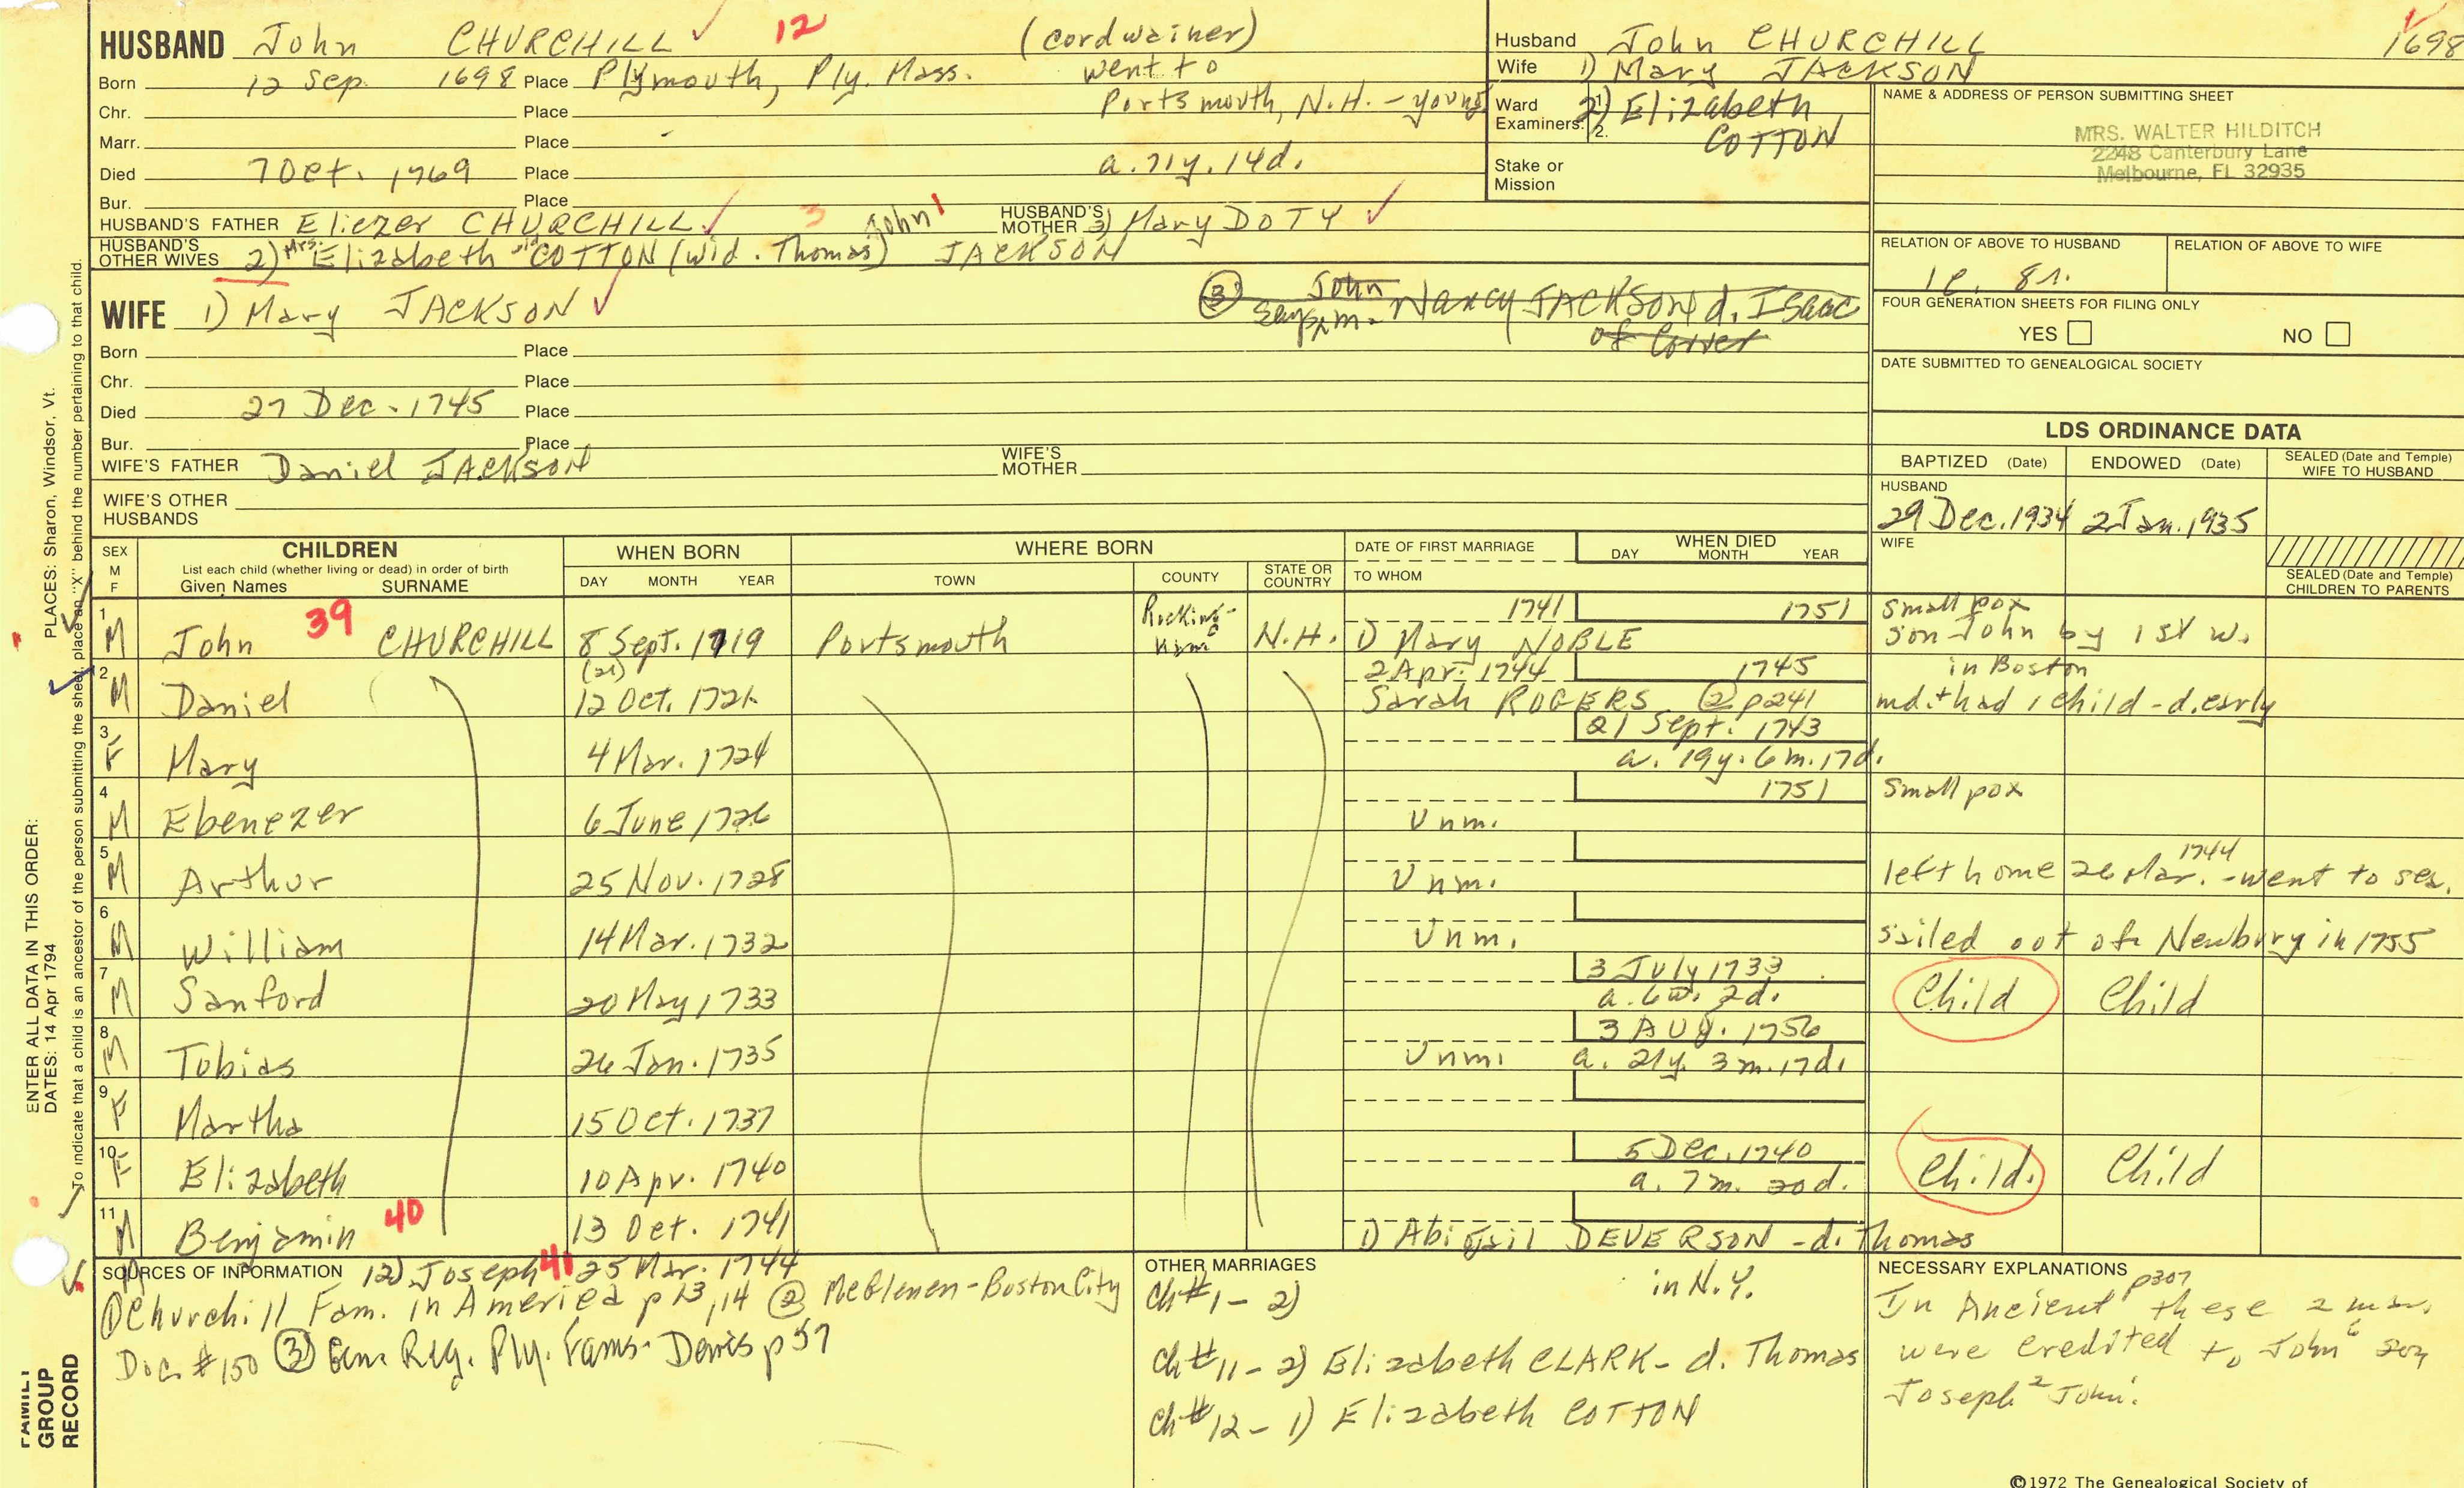 HUSBAND John CHURCHILL 12 (cordwainer)
Born 12 Sep. 1698 Place Plymouth, Ply. Mass. went to
Chr. Place Portsmouth, N.H. - young
Marr. Place
Died 7 Oct. 1769 Place a. 71y. 14d.
Bur. Place
HUSBAND'S FATHER Eliezer CHURCHILL 3 John 1 HUSBAND'S MOTHER 3) Mary DOTY
HUSBAND'S OTHER WIVES 2) Mrs. Elizabeth COTTON (wid. Thomas) JACKSON
WIFE 1) Mary JACKSON
(3) John says m. Nancy JACKSON d. Isaac
of
Born Place
Chr. Place
Died 27 Dec. 1745 Place
Bur. Place
WIFE'S FATHER Daniel JACKSON WIFE'S MOTHER
WIFE'S OTHER HUSBANDS
Husband John CHURCHILL 1698
Wife 1) Mary JACKSON
Ward Examiners: 1. 2. 2) Elizabeth
COTTON
Stake or Mission
NAME & ADDRESS OF PERSON SUBMITTING SHEET
MRS. WALTER HILDITCH
2248 Canterbury Lane
Melbourne, FL 32935
RELATION OF ABOVE TO HUSBAND RELATION OF ABOVE TO WIFE
FOUR GENERATION SHEETS FOR FILING ONLY
YES NO
DATE SUBMITTED TO GENEALOGICAL SOCIETY
LDS ORDINANCE DATA
BAPTIZED (Date) ENDOWED (Date) SEALED (Date and Temple) WIFE TO HUSBAND
HUSBAND
29 Dec. 1934 2 Jan. 1935
WIFE
SEALED (Date and Temple) CHILDREN TO PARENTS
SEX M F CHILDREN WHEN BORN WHERE BORN DATE OF FIRST MARRIAGE WHEN DIED
List each child (whether living or dead) in order of birth DAY MONTH YEAR
Given Names SURNAME DAY MONTH YEAR TOWN COUNTY STATE OR COUNTRY TO WHOM
1 M John 39 CHURCHILL 8 Sept. 1719 Portsmouth Rockingham N.H. 1741 1751 small pox
1) Mary NOBLE son John by 1st w.
2 M Daniel (21) 12 Oct. 1721 2 Apr. 1744 1745 in Boston
Sarah ROGERS (2) p241 md. + had 1 child - d. early
3 F Mary 4 Mar. 1724 21 Sept. 1743
a. 19y. 6m. 17d.
4 M Ebenezer 6 June 1726 Unm. 1751 small pox
5 M Arthur 25 Nov. 1728 Unm. left home 26 Mar. 1744 - went to sea.
6 M William 14 Mar. 1732 Unm. sailed out of Newbury in 1755
7 M Sanford 20 May 1733 3 July 1733 Child Child
a. 6w. 2d.
8 M Tobias 26 Jan. 1735 Unm. 3 AUG. 1756
a. 21y. 3m. 17d.
9 F Martha 15 Oct. 1737
10 F Elizabeth 10 Apr. 1740 5 Dec. 1740 Child. Child
a. 7m. 20d.
11 M Benjamin 40 13 Oct. 1741 1) Abigail DEVERSON - d. Thomas
SOURCES OF INFORMATION 12) Joseph 41 25 Mar. 1744
① Churchill Fam. in America p 13, 14 ② - Boston City
Doc. #150 ③ Gen. Reg. Ply. Fams. Davis p 57
OTHER MARRIAGES in N.Y.
Ch #1 - 2)
Ch #11 - 2) Elizabeth CLARK - d. Thomas
Ch #12 - 1) Elizabeth COTTON
NECESSARY EXPLANATIONS p307
In Ancient these 2
were credited to John 6 son
Joseph 2 John 1.
©1972 The Genealogical Society of
ENTER ALL DATA IN THIS ORDER:
DATES: 14 Apr 1794 PLACES: Sharon, Windsor, Vt.
To indicate that a child is an ancestor of the person submitting the sheet, place an "X" behind the number pertaining to that child.
FAMILY GROUP RECORD